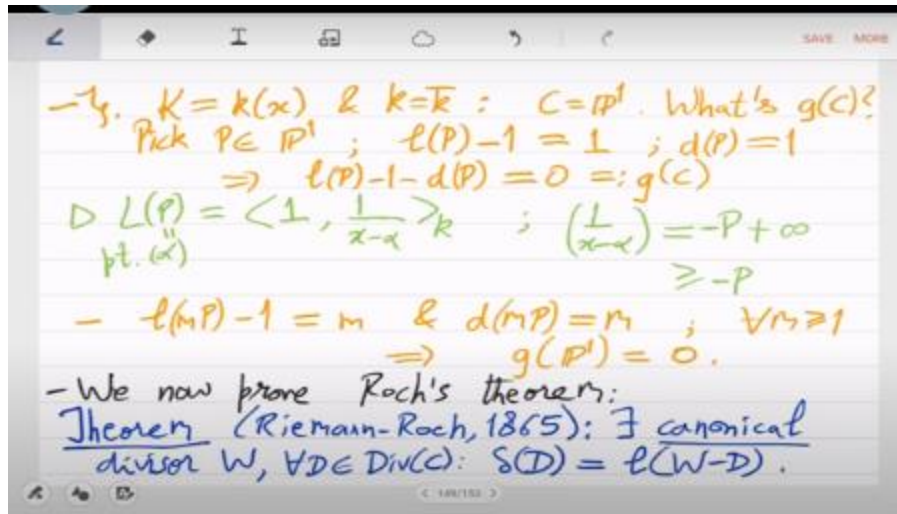 SAVE MORE
- Eg. K = k(x) & k = k̄ : C = ℙ¹. What's g(C)?
Pick P ∈ ℙ¹ ; ℓ(P)-1 = 1 ; d(P) = 1
⇒ ℓ(P)-1-d(P) = 0 =: g(C)
▷ L(P) = <1, 1/(x-α)>_k ; (1/(x-α)) = -P + ∞
pt. (α) ≥ -P
- ℓ(mP)-1 = m & d(mP) = m ; ∀m ≥ 1
⇒ g(ℙ¹) = 0.
- We now prove Roch's theorem:
Theorem (Riemann-Roch, 1865): ∃ canonical
divisor W, ∀D ∈ Div(C): δ(D) = ℓ(W-D).
< 149/153 >